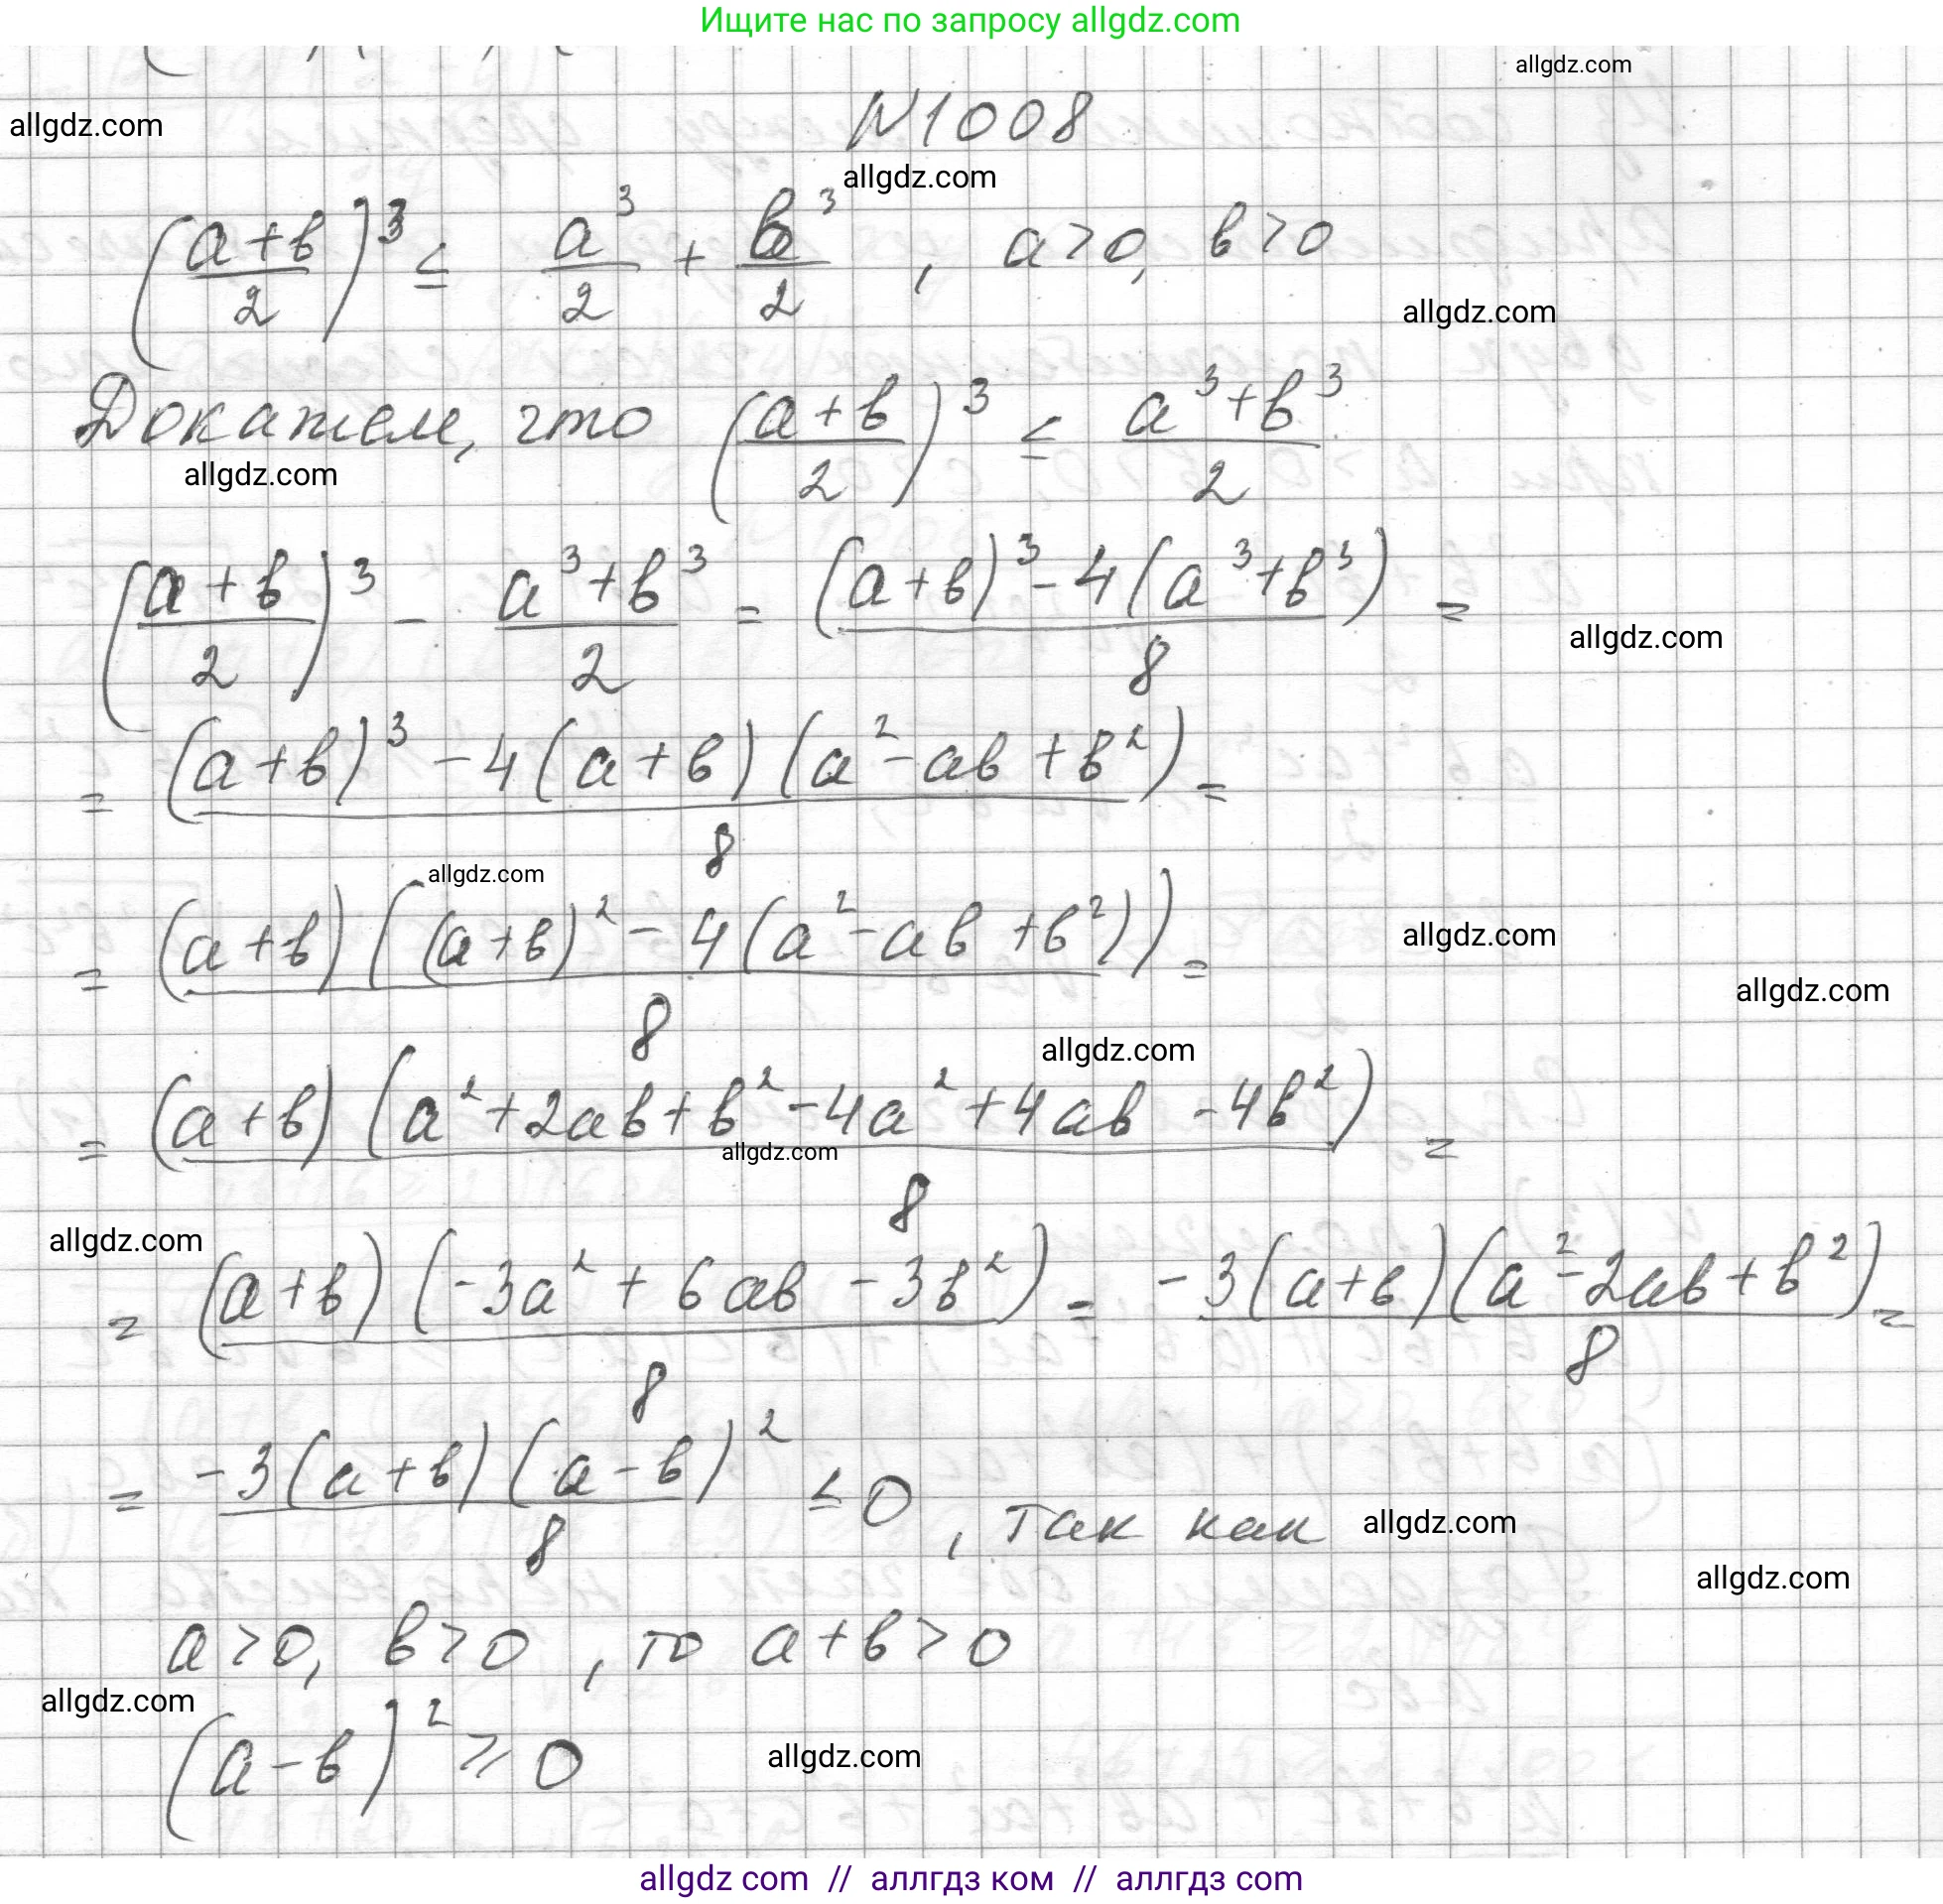 Ищите нас по запросу allgdz.com
allgdz.com
allgdz.com
N1008
allgdz.com
((a+в)/2)³ ≤ a³/2 + в³/2, a>0, в>0
allgdz.com
Докажем, что ((a+в)/2)³ ≤ (a³+в³)/2
allgdz.com
((a+в)/2)³ - (a³+в³)/2 = ((a+в)³-4(a³+в³))/8 =
allgdz.com
= ((a+в)³-4(a+в)(a²-aв+в²))/8 =
allgdz.com
= (a+в)((a+в)²-4(a²-aв+в²))/8 =
allgdz.com
allgdz.com
allgdz.com
= (a+в)(a²+2aв+в²-4a²+4aв-4в²)/8 =
allgdz.com
allgdz.com
= (a+в)(-3a²+6aв-3в²)/8 = -3(a+в)(a²-2aв+в²)/8 =
= -3(a+в)(a-в)²/8 ≤ 0, так как
allgdz.com
allgdz.com
a>0, в>0, то a+в>0
allgdz.com
(a-в)² ≥ 0
allgdz.com
allgdz com // аллгдз ком // аллгдз com